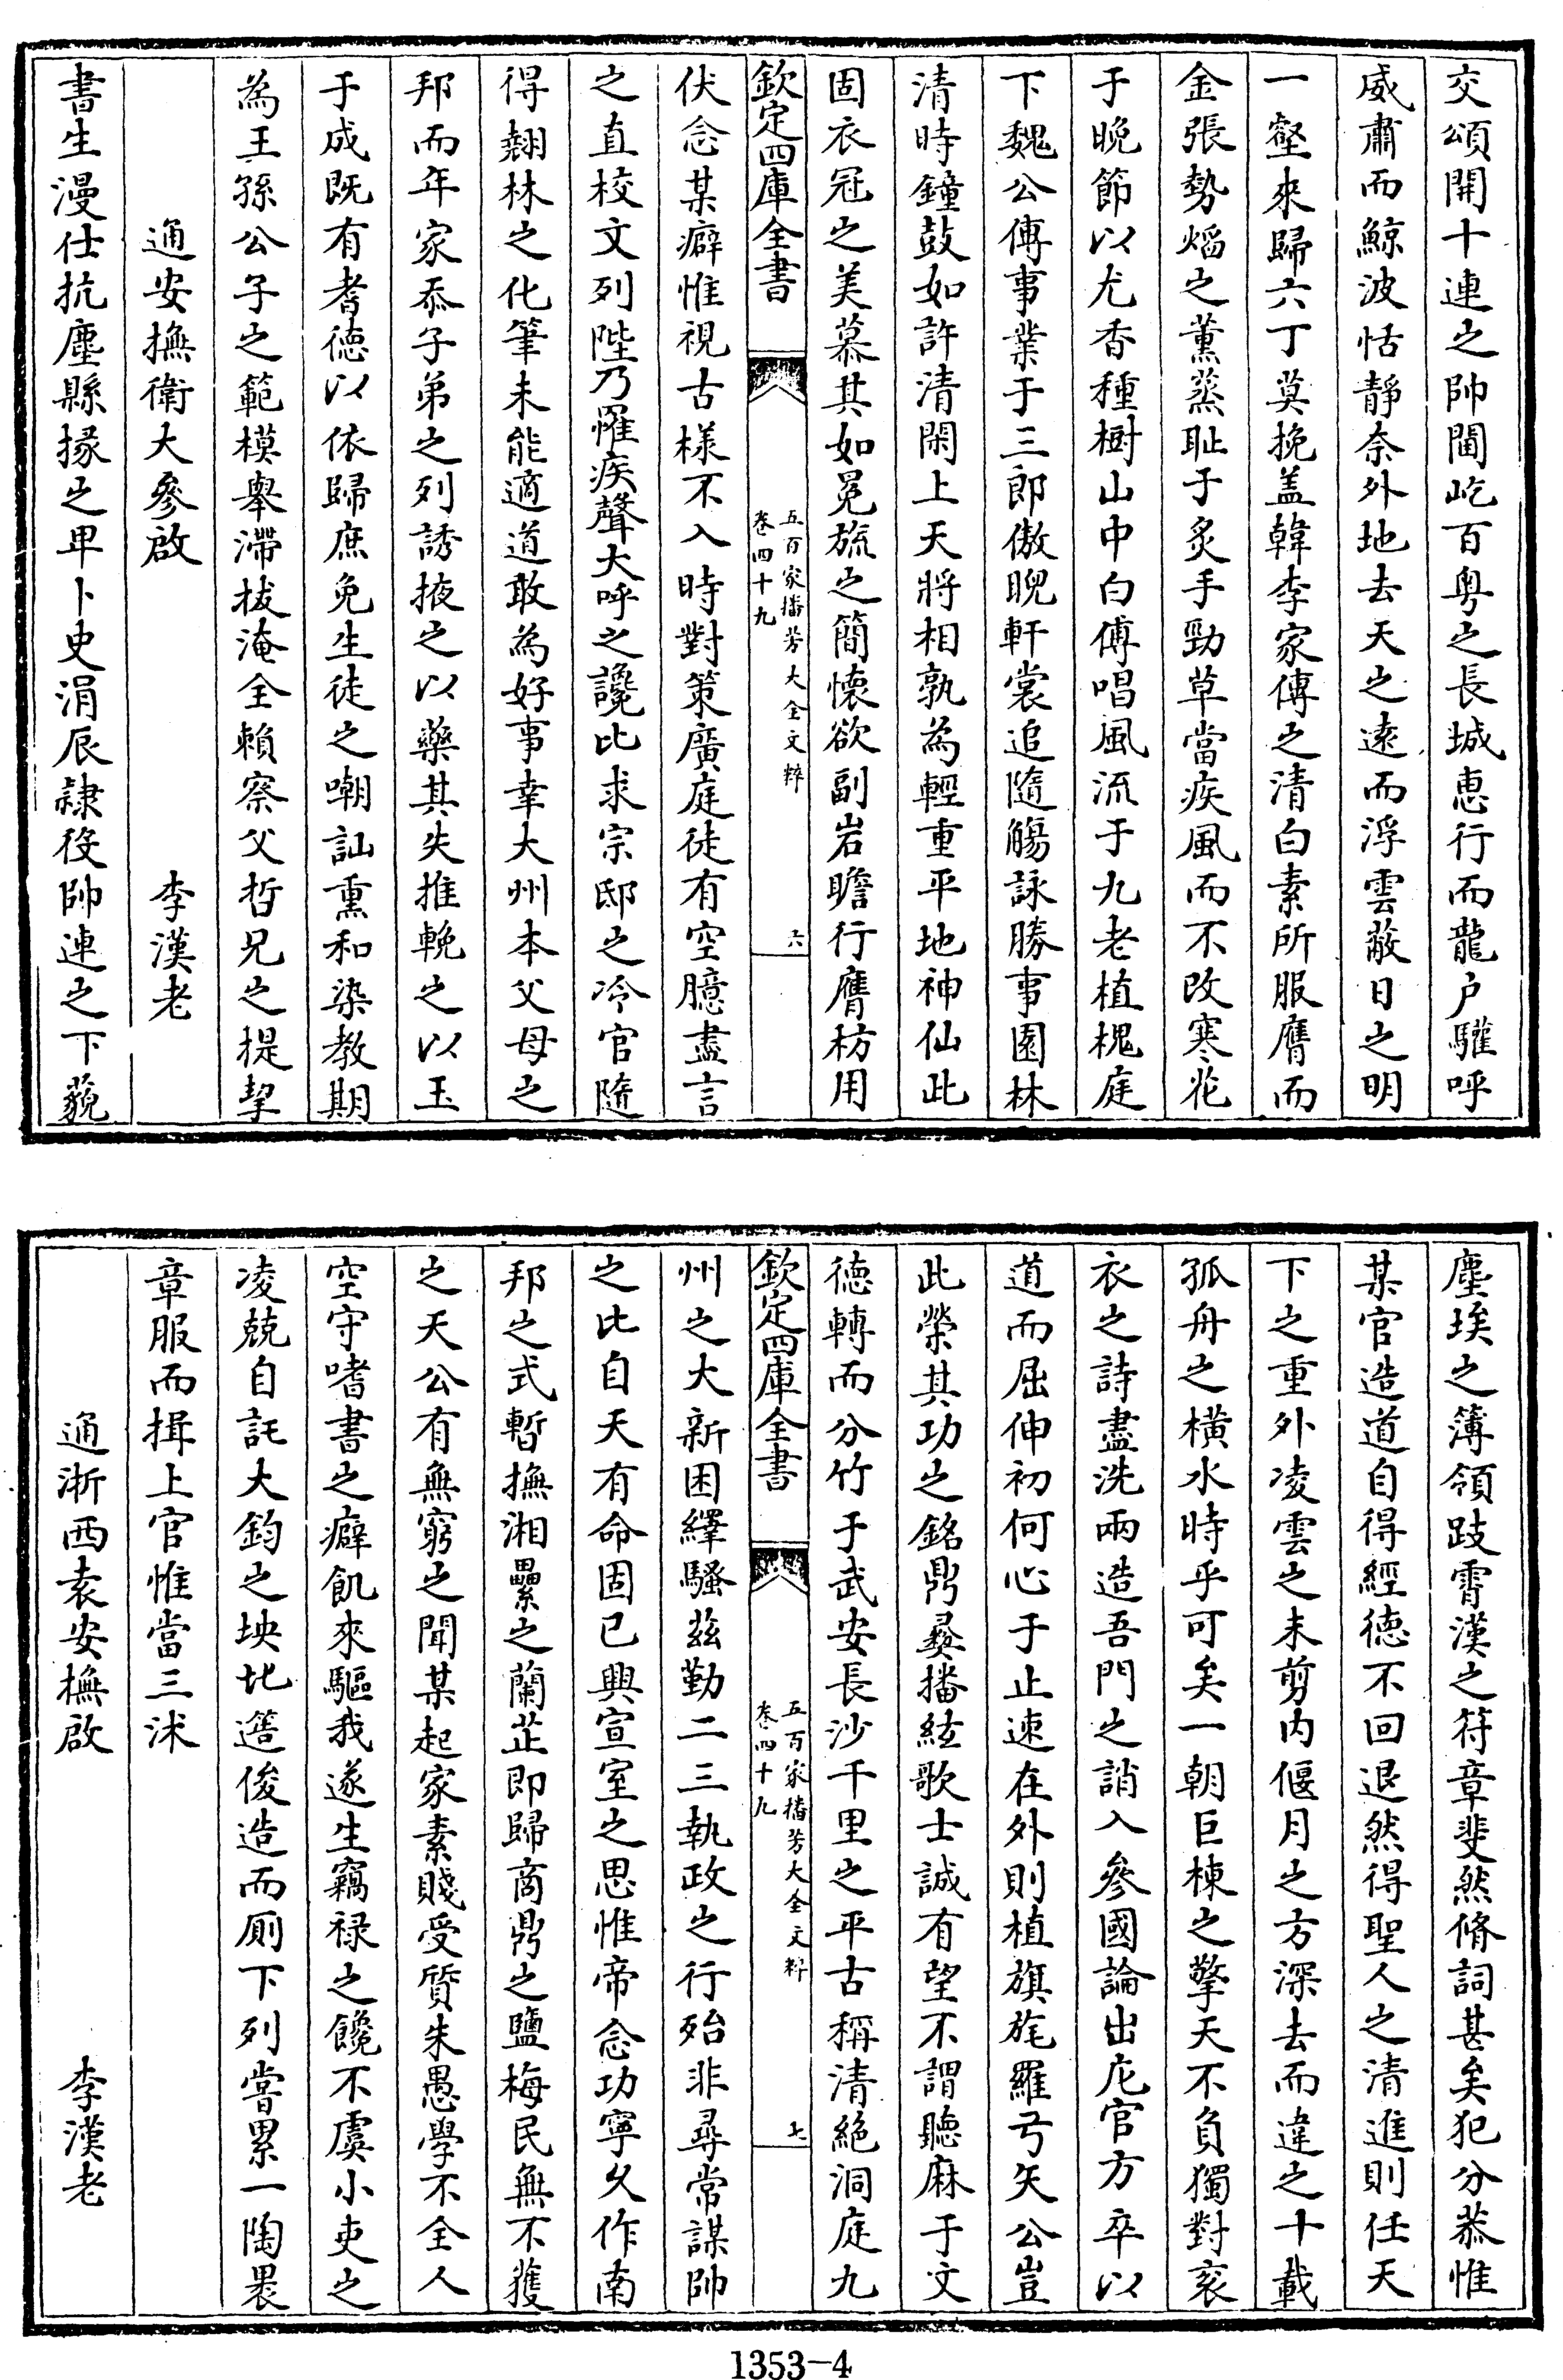 交頌開十連之帥閫屹百粤之長城惠行而龍户驩呼
威肅而鯨波恬靜奈外地去天之遠而浮雲蔽日之明
一壑來歸六丁莫挽盖韓李家傳之清白素所服膺而
金張勢熖之薫蒸耻于炙手勁草當疾風而不改寒花
于晩節以尤香種樹山中白傅唱風流于九老植槐庭
下魏公傳事業于三郎傲睨軒裳追隨觴詠勝事園林
清時鐘鼓如許清閑上天將相孰為輕重平地神仙此
固衣冠之美慕其如冕旒之簡懐欲副岩瞻行膺枋用
欽定四庫全書
五百家播芳大全文粹
卷四十九
六
伏念某癖惟視古様不入時對策廣庭徒有空臆盡言
之直校文列陛乃罹疾聲大呼之讒比求宗邸之冷官隨
得翹林之化筆未能適道敢為好事幸大州本父母之
邦而年家忝子弟之列誘掖之以藥其失推輓之以玉
于成既有耆徳以依歸庶免生徒之嘲訕熏和染教期
為王孫公子之範模舉滯抜淹全賴察父哲兄之提挈
通安撫衛大參啟
李漢老
書生漫仕抗塵縣掾之卑卜史涓辰隷役帥連之下藐
塵埃之簿領跂霄漢之符章斐然脩詞甚矣犯分恭惟
某官造道自得經徳不回退然得聖人之清進則任天
下之重外凌雲之末剪内偃月之方深去而違之十載
孤舟之横水時乎可矣一朝巨棟之擎天不負獨對衮
衣之詩盡洗兩造吾門之誚入參國論出庀官方卒以
道而屈伸初何心于止速在外則植旗旄羅弓矢公豈
此榮其功之銘鼎彝播絃歌士誠有望不謂聽麻于文
徳轉而分竹于武安長沙千里之平古稱清絶洞庭九
欽定四庫全書
五百家播芳大全文粹
卷四十九
七
州之大新困繹騷兹勤二三執政之行殆非尋常謀帥
之比自天有命固已興宣室之思惟帝念功寧久作南
邦之式暫撫湘纍之蘭芷即歸商鼎之鹽梅民無不獲
之天公有無窮之聞某起家素賤受質朱愚學不全人
空守嗜書之癖飢來驅我遂生竊禄之饞不虞小吏之
凌兢自託大鈞之坱圠簉俊造而厠下列嘗累一陶褁
章服而揖上官惟當三沭
通浙西袁安撫啟
李漢老
1353-4